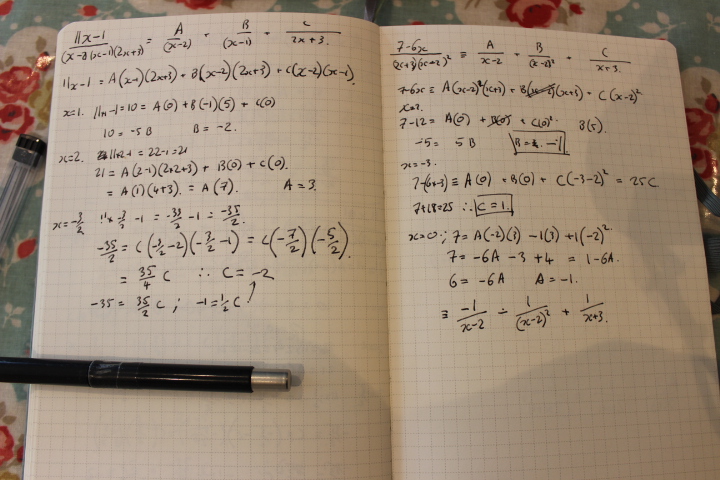 11x-1/(x-2)(x-1)(2x+3) = A/(x-2) + B/(x-1) + C/2x+3.
11x-1 = A(x-1)(2x+3) + B(x-2)(2x+3) + C(x-2)(x-1).
x=1. 11x1-1=10 = A(0) + B(-1)(5) + C(0)
10 = -5B B = -2.
x=2. 11x2-1 = 22-1=21
21 = A(2-1)(2x2+3) + B(0) + C(0).
= A(1)(4+3). = A(7). A = 3.
x=-3/2 11x-3/2 -1 = -33/2 -1 = -35/2.
-35/2 = C(-3/2-2)(-3/2-1) = C(-7/2)(-5/2).
= 35/4 C ∴ C = -2
-35 = 35/2 C ; -1 = 1/2 C
7-6x/(x+3)(x-2)² ≡ A/x-2 + B/(x-2)² + C/x+3.
7-6x ≡ A(x-2)(x+3) + B(x+3) + C(x-2)²
x=2.
7-12 = A(0) + B(0) + C(0)². B(5).
-5 = 5B B = -1
x=-3.
7-(6x-3) ≡ A(0) + B(0) + C(-3-2)² = 25C
7+18=25 ∴ C=1.
x=0; 7 = A(-2)(3) -1(3) +1(-2)².
7 = -6A -3 +4 = 1-6A.
6 = -6A A = -1.
≡ -1/x-2 - 1/(x-2)² + 1/x+3.